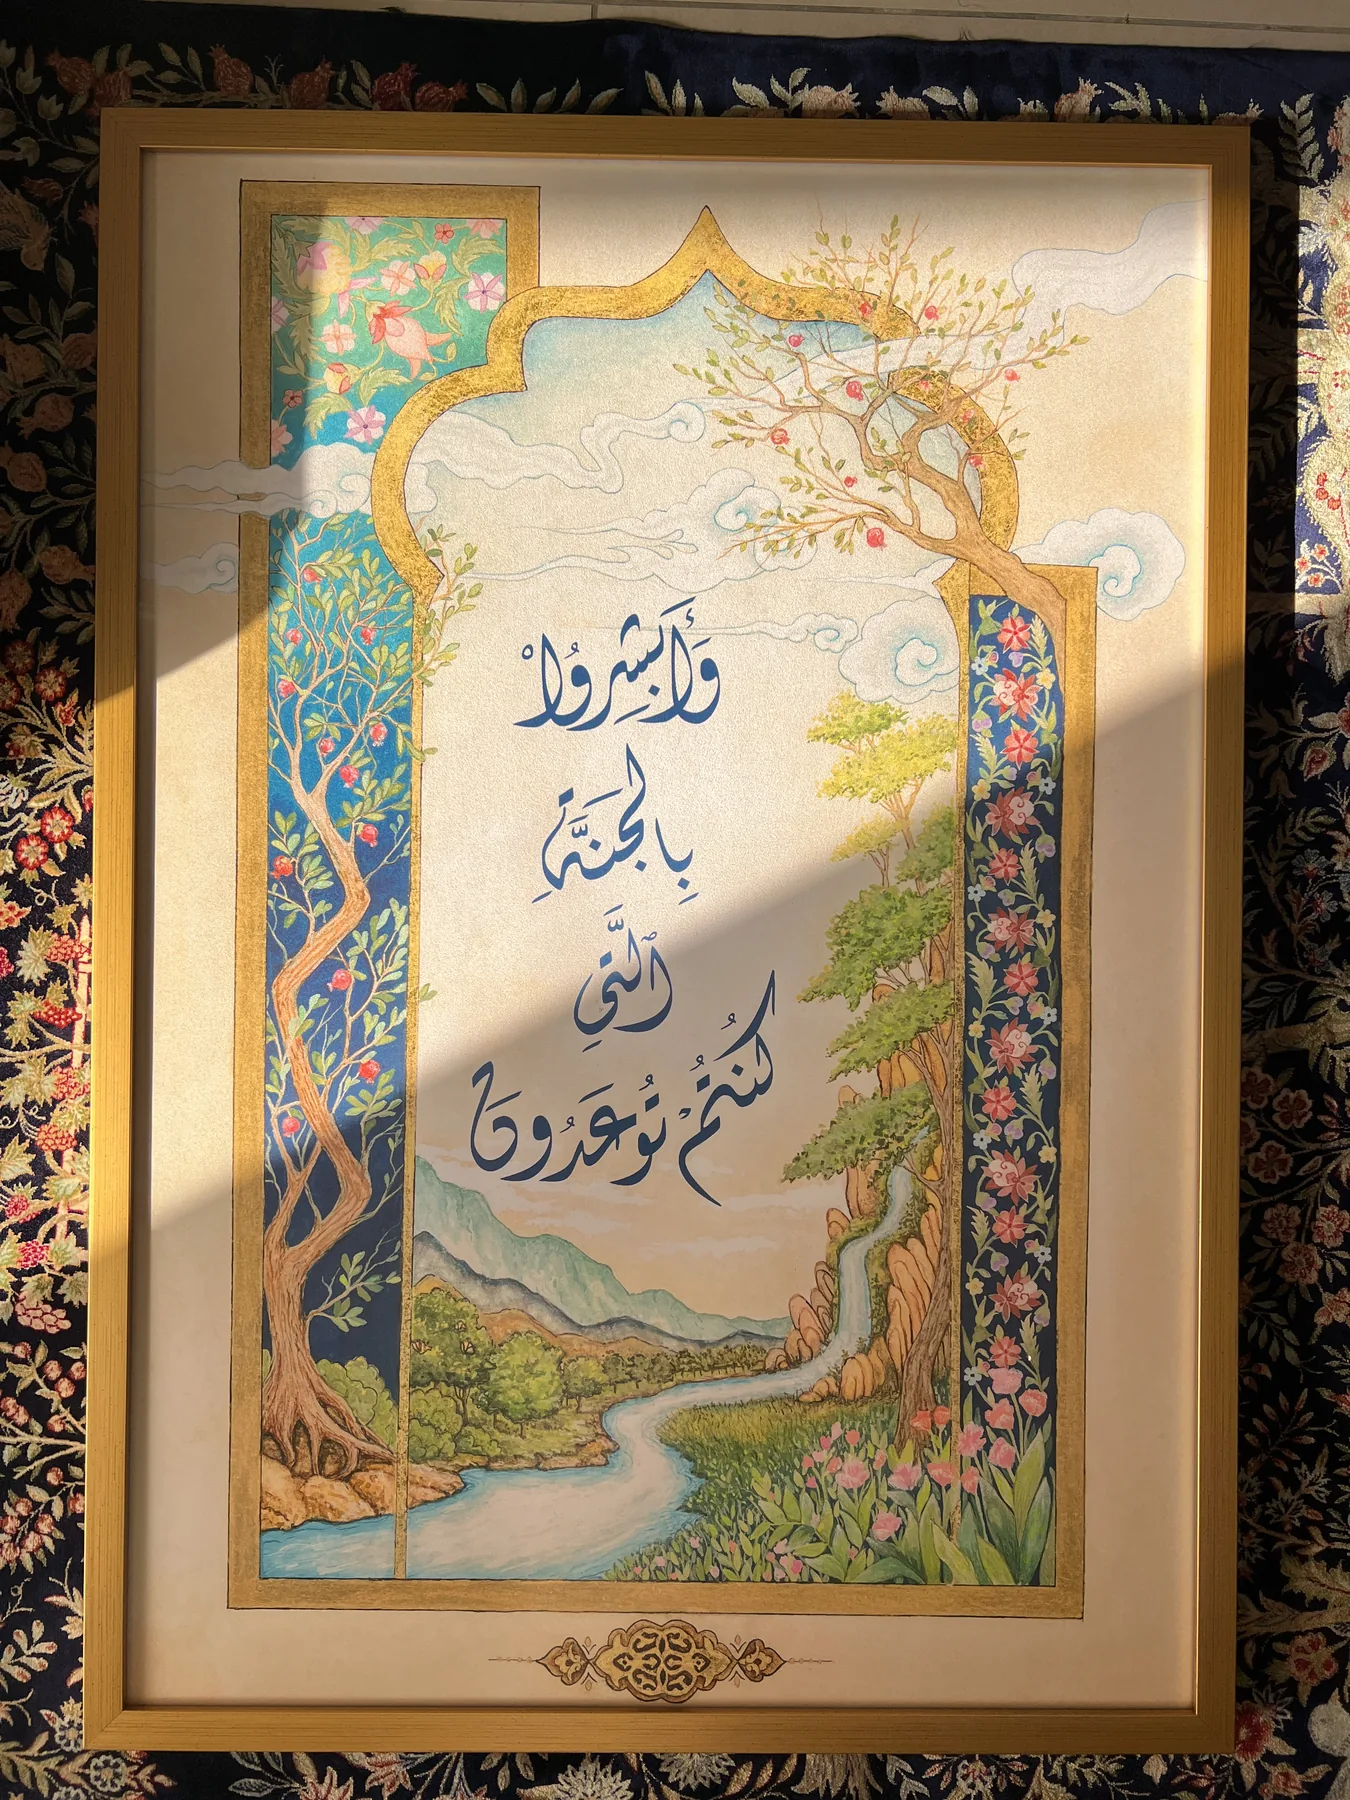 وَأَبۡشِرُواْ
بِالۡجَنَّةِ
ٱلَّتِي
كُنتُمۡ تُوعَدُونَ